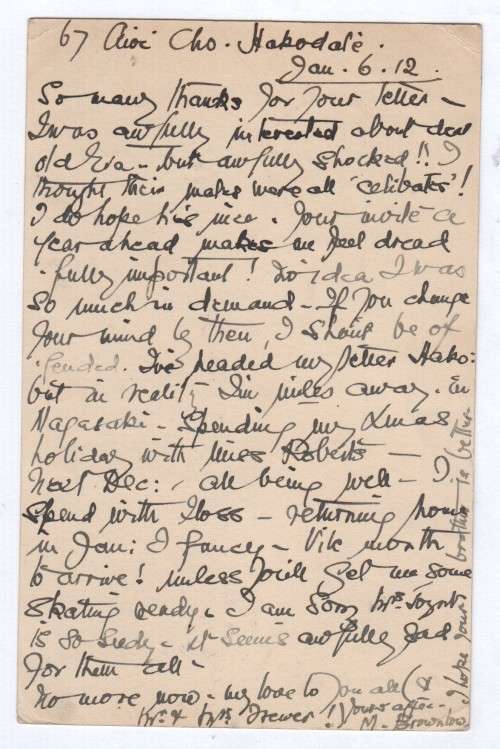 67 Aioi Cho. Hakodate.
Jan. 6. 12.
So many thanks for your letter -
I was awfully interested about dear
old Eva - but awfully shocked!! I
thought their males were all 'celibates'!
I do hope he's nice. Your invite a
year ahead makes me feel dread
fully important! No idea I was
so much in demand - If you change
your mind by then, I shan't be of
fended. I've headed my letter Hako:
but in reality I'm miles away. in
Nagasaki - Spending my Xmas
holiday with Miss Roberts -
Next Dec:, all being well - I
spend with - returning home
in Jan: I fancy - month
to arrive! unless you'll get me some
skating ready. I am sorry Mrs.
is so seedy - it seems awfully sad
for them all -
No more now - my love to you all (&
Mr. & Mrs. Trewer!) Yours affec.
M. Brownlow
I hope your brother is better.